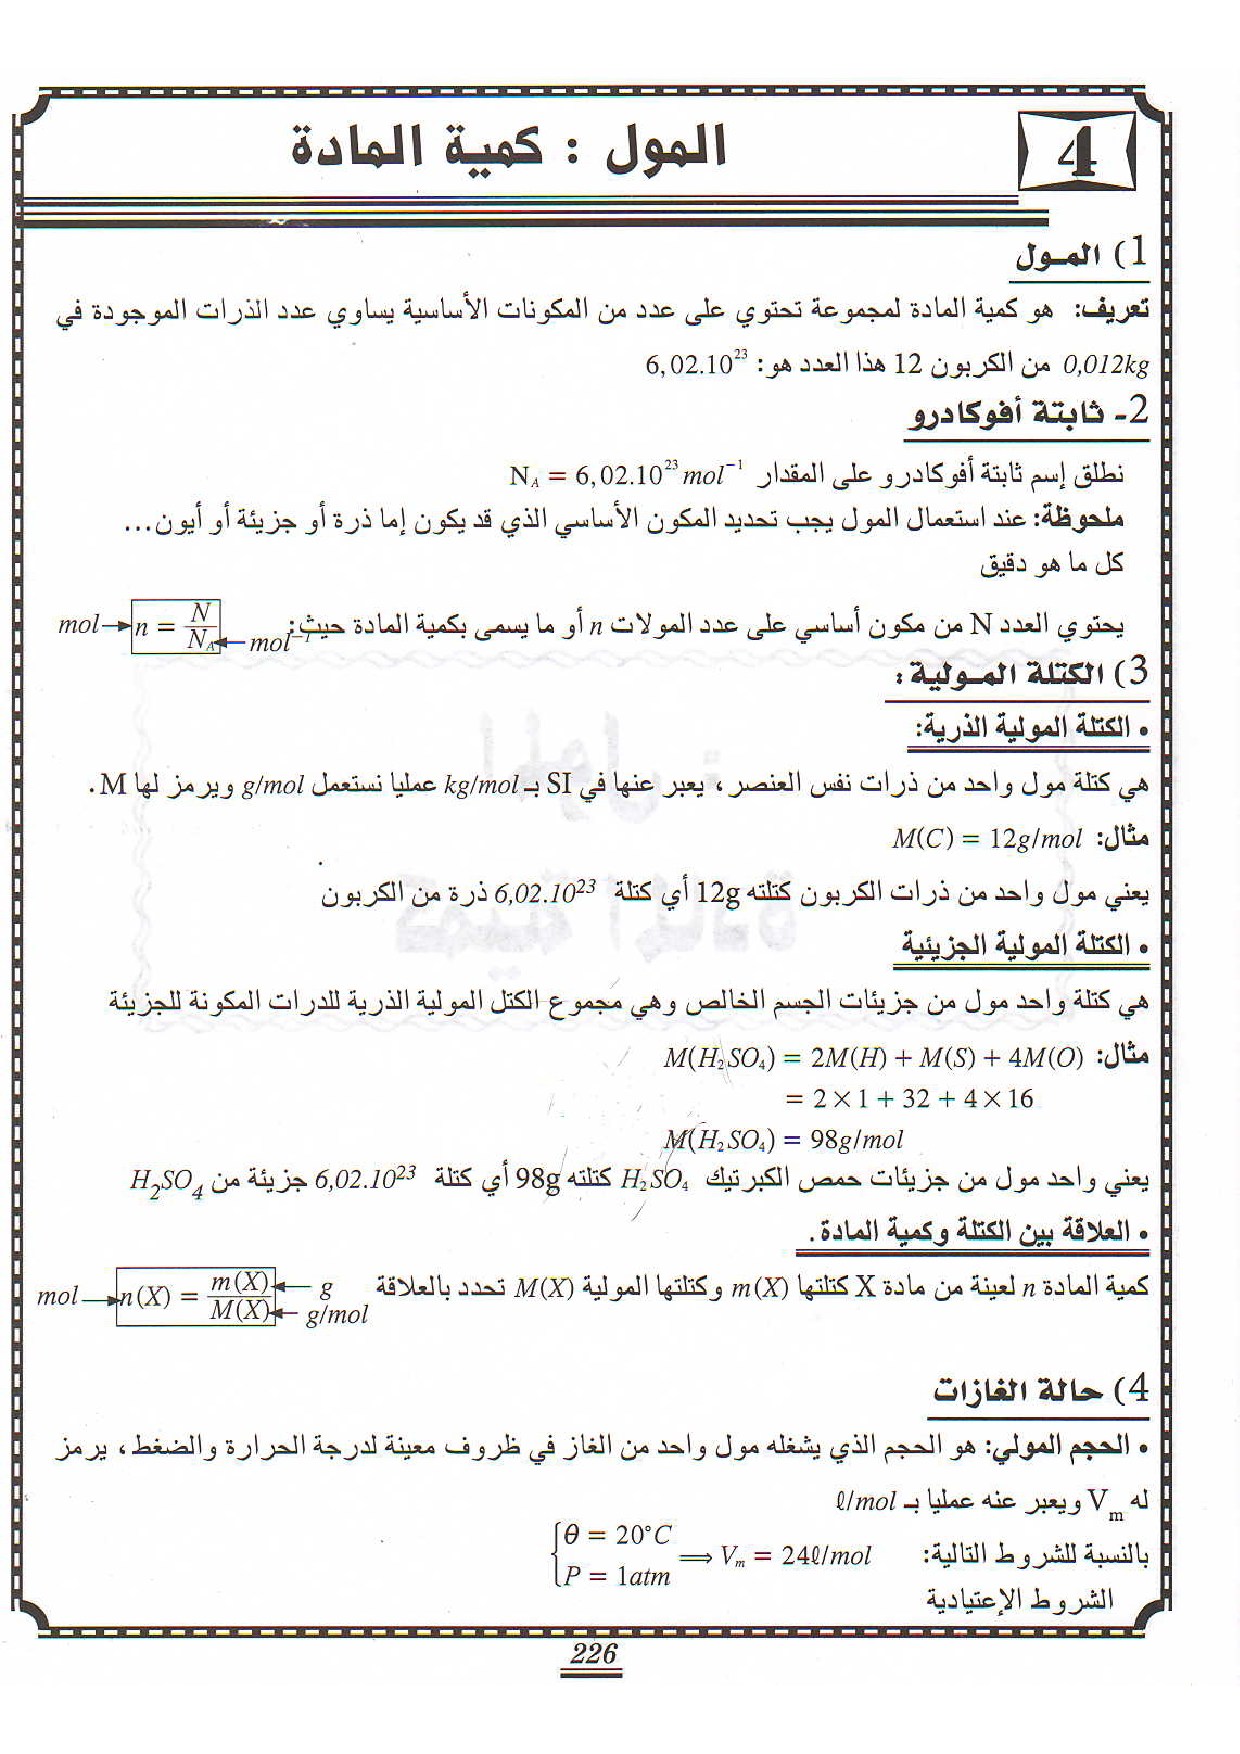 4
المول : كمية المادة
1) المول
تعريف: هو كمية المادة لمجموعة تحتوي على عدد من المكونات الأساسية يساوي عدد الذرات الموجودة في
0,012kg من الكربون 12 هذا العدد هو: 6,02.10²³
2- ثابتة أفوكادرو
نطلق إسم ثابتة أفوكادرو على المقدار N_A = 6,02.10²³ mol⁻¹
ملحوظة: عند استعمال المول يجب تحديد المكون الأساسي الذي قد يكون إما ذرة أو جزيئة أو أيون...
كل ما هو دقيق
يحتوي العدد N من مكون أساسي على عدد المولات n أو ما يسمى بكمية المادة حيث: mol→ n = N/N_A ← mol⁻¹
3) الكتلة المولية :
• الكتلة المولية الذرية:
هي كتلة مول واحد من ذرات نفس العنصر، يعبر عنها في SI بـ kg/mol عمليا نستعمل g/mol ويرمز لها M.
مثال: M(C) = 12g/mol
يعني مول واحد من ذرات الكربون كتلته 12g أي كتلة 6,02.10²³ ذرة من الكربون
• الكتلة المولية الجزيئية
هي كتلة واحد مول من جزيئات الجسم الخالص وهي مجموع الكتل المولية الذرية للدرات المكونة للجزيئة
مثال: M(H₂SO₄) = 2M(H) + M(S) + 4M(O)
= 2 × 1 + 32 + 4 × 16
M(H₂SO₄) = 98g/mol
يعني واحد مول من جزيئات حمص الكبرتيك H₂SO₄ كتلته 98g أي كتلة 6,02.10²³ جزيئة من H₂SO₄
• العلاقة بين الكتلة وكمية المادة.
كمية المادة n لعينة من مادة X كتلتها m(X) وكتلتها المولية M(X) تحدد بالعلاقة mol→ n(X) = m(X)/M(X) ← g ← g/mol
4) حالة الغازات
• الحجم المولي: هو الحجم الذي يشغله مول واحد من الغاز في ظروف معينة لدرجة الحرارة والضغط، يرمز
له V_m ويعبر عنه عمليا بـ ℓ/mol
بالنسبة للشروط التالية: {θ = 20°C P = 1atm ⟹ V_m = 24ℓ/mol
الشروط الإعتيادية
226